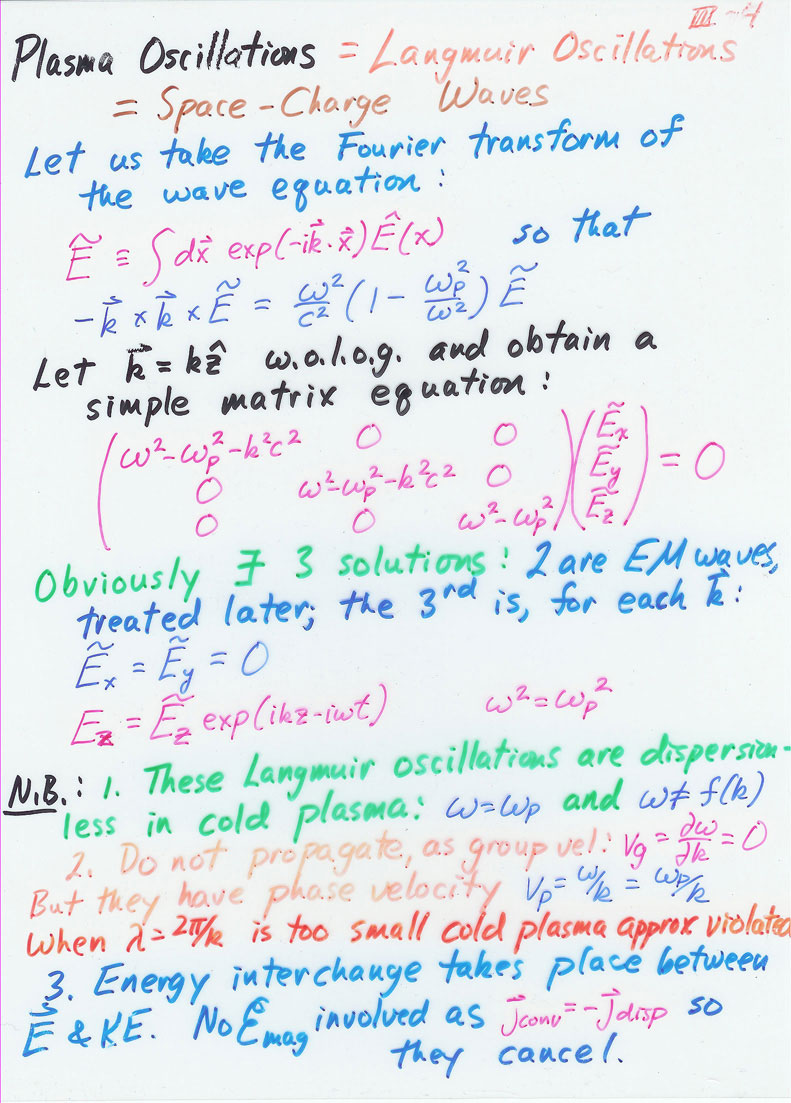 III-4
Plasma Oscillations = Langmuir Oscillations
= Space-Charge Waves
Let us take the Fourier transform of
the wave equation:
Ẽ ≡ ∫dx⃗ exp(-ik⃗·x⃗)Ê(x) so that
-k⃗ × k⃗ × Ẽ = ω²/c² (1 - ωp²/ω²) Ẽ
Let k⃗ = kẑ w.o.l.o.g. and obtain a
simple matrix equation:
(ω²-ωp²-k²c² 0 0)(Ẽx)
(0 ω²-ωp²-k²c² 0)(Ẽy) = 0
(0 0 ω²-ωp²)(Ẽz)
Obviously ∃ 3 solutions: 2 are EM waves,
treated later; the 3rd is, for each k⃗:
Ẽx = Ẽy = 0
Ez = Ẽz exp(ikz-iωt) ω² = ωp²
N.B.: 1. These Langmuir oscillations are dispersion-
less in cold plasma: ω=ωp and ω≠f(k)
2. Do not propagate, as group vel: vg = ∂ω/∂k = 0
But they have phase velocity vp = ω/k = ωp/k
When λ=2π/k is too small cold plasma approx violated
3. Energy interchange takes place between
E⃗ & KE. No Ɛmag involved as j⃗conv = -j⃗disp so
they cancel.